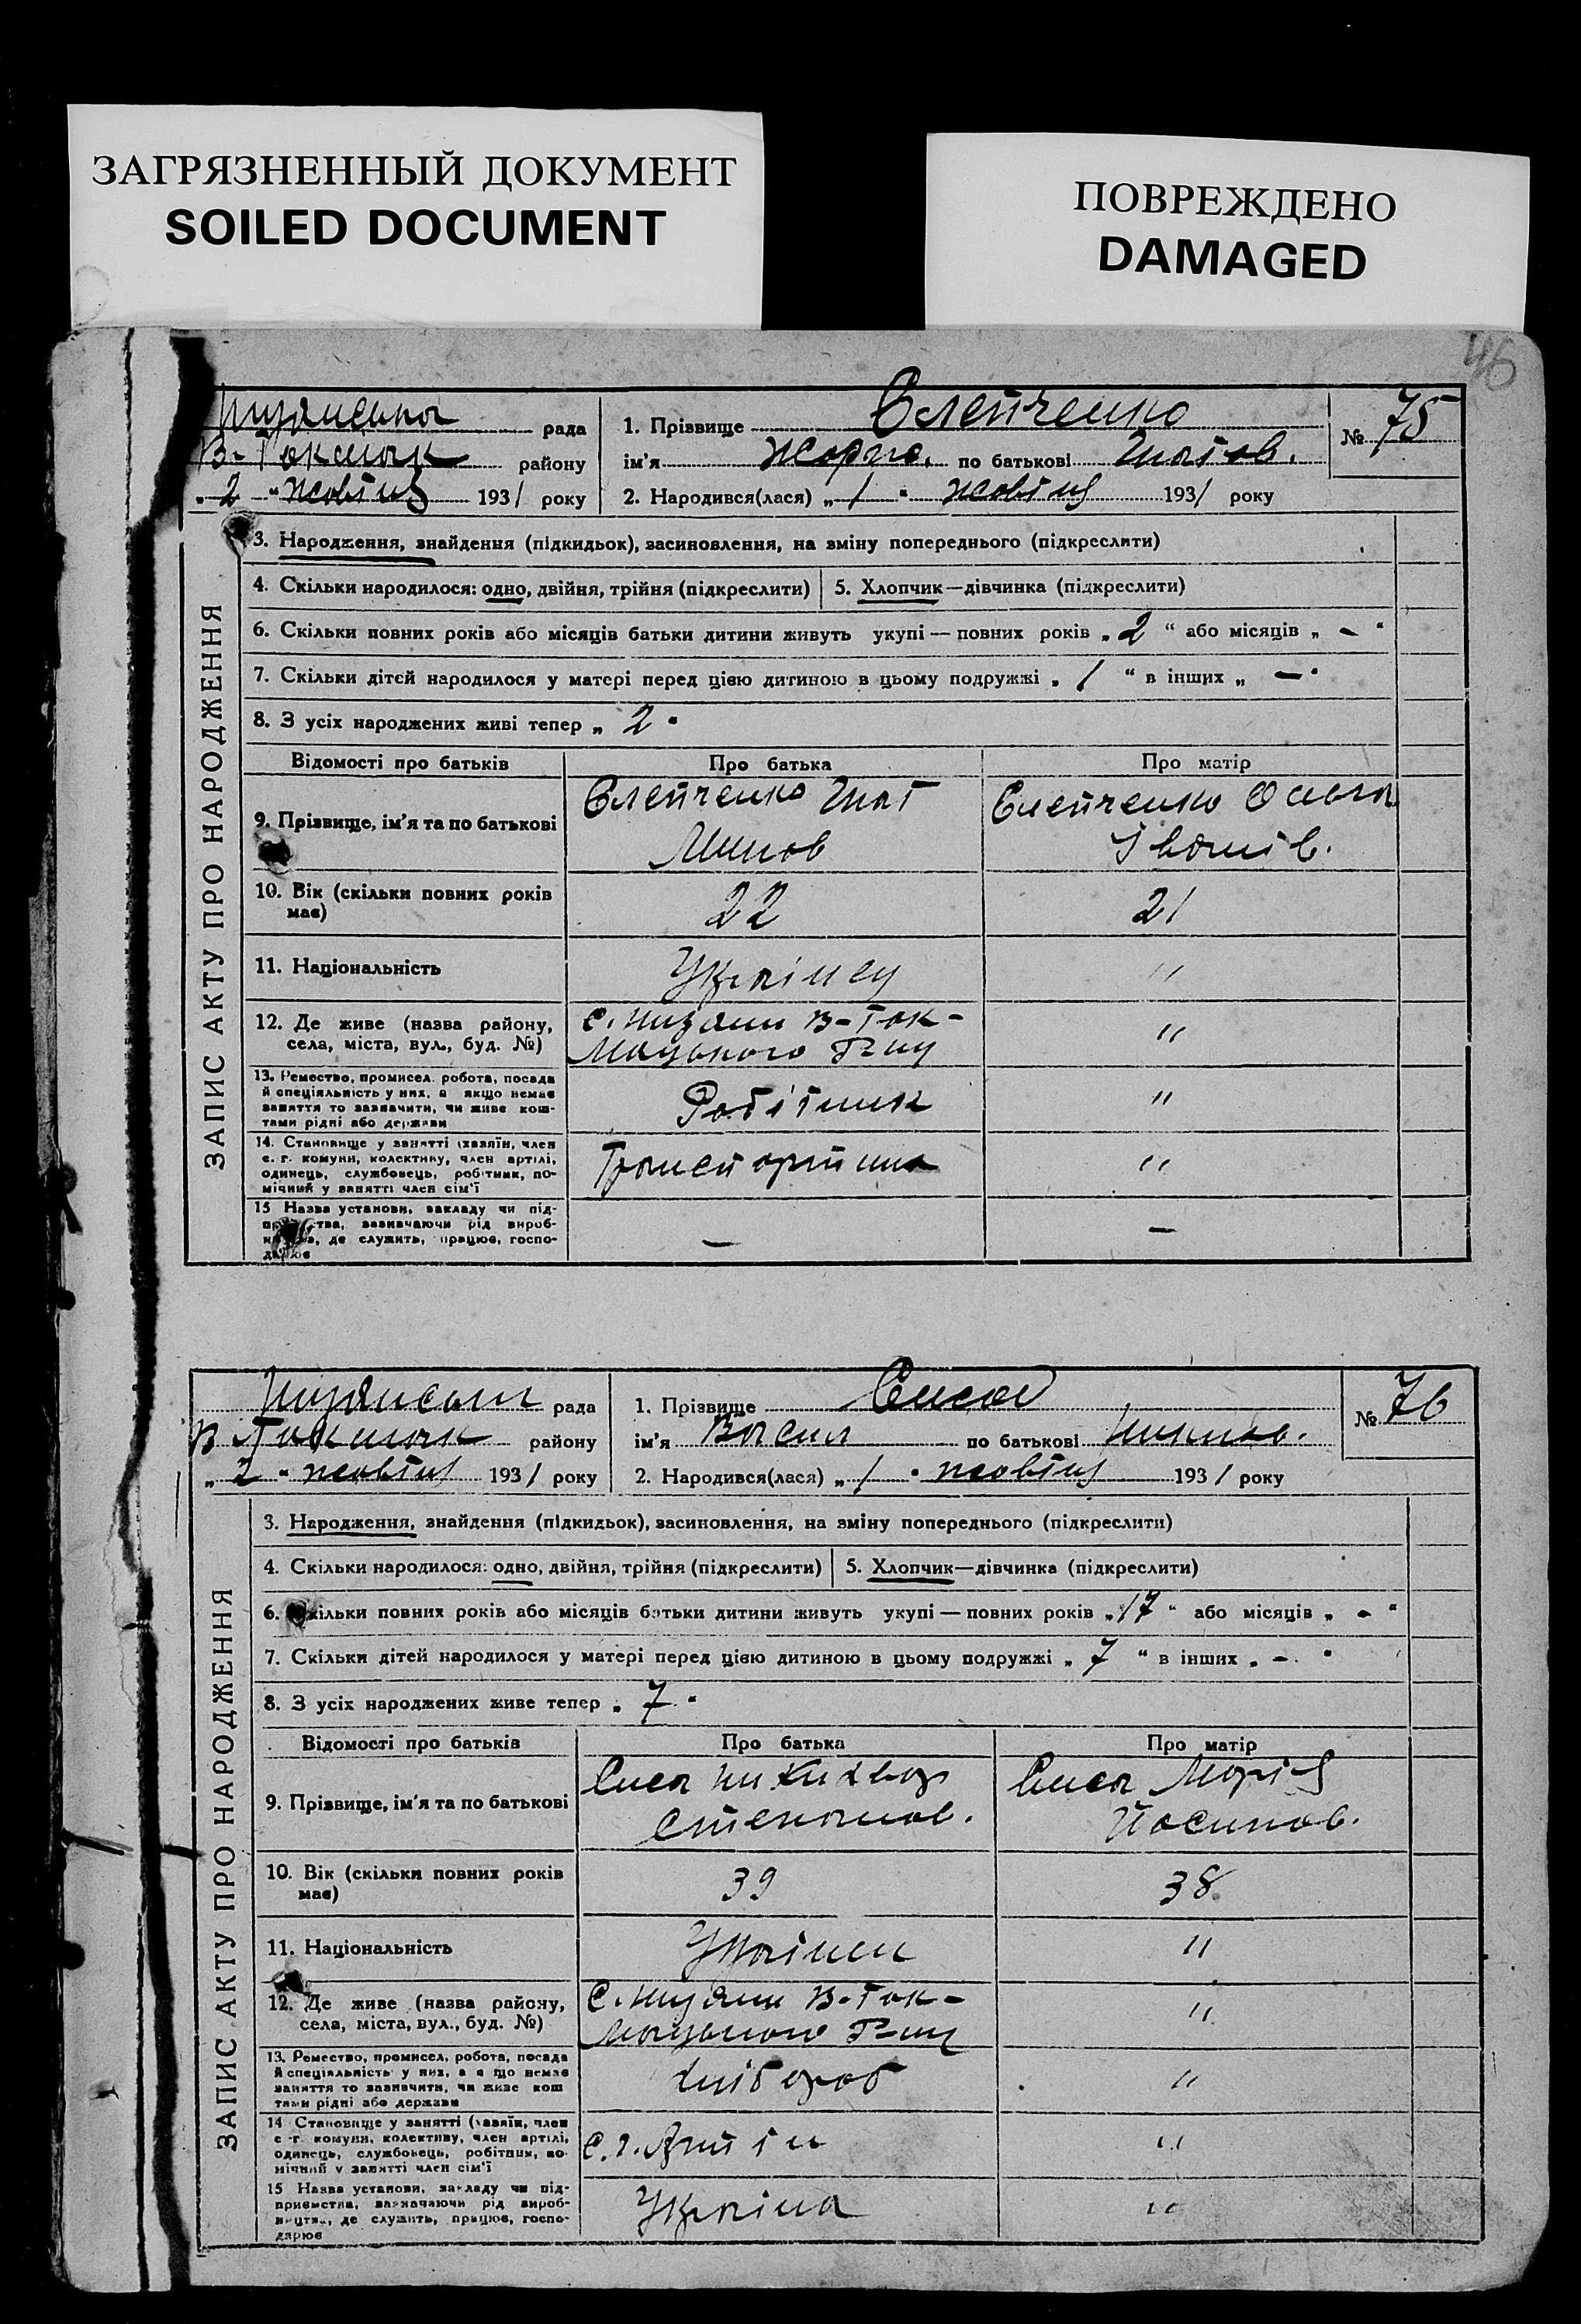 ЗАГРЯЗНЕННЫЙ ДОКУМЕНТ
SOILED DOCUMENT
ПОВРЕЖДЕНО
DAMAGED
46
ЗАПИС АКТУ ПРО НАРОДЖЕННЯ
рада
В-Токмак району
„2" жовтня 1931 року
1. Прізвище Слепченко
ім'я Жорж. по батькові
2. Народився(лася) „1" жовтня 1931 року
№ 75
3. Народження, знайдення (підкидьок), засиновлення, на зміну попереднього (підкреслити)
4. Скільки народилося: одно, двійня, трійня (підкреслити)
5. Хлопчик—дівчинка (підкреслити)
6. Скільки повних років або місяців батьки дитини живуть укупі — повних років „2" або місяців „–"
7. Скільки дітей народилося у матері перед цією дитиною в цьому подружжі „1" в інших „—"
8. З усіх народжених живі тепер „2"
Відомості про батьків Про батька Про матір
9. Прізвище, ім'я та по батькові
Слепченко Гнат
Слепченко Ольга
Іванів.
10. Вік (скільки повних років має) 22 21
11. Національність Украінец "
12. Де живе (назва району,
села, міста, вул., буд. №)
В-Ток-
мацького Р-ну
"
13. Ремество, промисел, робота, посада
й спеціяльність у них, а якщо немає
заняття то зазначити, чи живе кош-
тами рідні або держави
Робітник "
14. Становище у занятті (хазяїн, член
с. г. комуни, колективу, член артілі,
одинець, службовець, робітник, по-
мічний у занятті член сім'ї
"
15 Назва установи, закладу чи під-
приємства, зазначаючи рід вироб-
ництва, де служить, працює, госпо-
дарює
— —
ЗАПИС АКТУ ПРО НАРОДЖЕННЯ
рада
В Токмак району
„2" жовтня 1931 року
1. Прізвище Сиса
ім'я Василь по батькові
2. Народився(лася) „1" жовтня 1931 року
№ 76
3. Народження, знайдення (підкидьок), засиновлення, на зміну попереднього (підкреслити)
4. Скільки народилося: одно, двійня, трійня (підкреслити)
5. Хлопчик—дівчинка (підкреслити)
6. Скільки повних років або місяців батьки дитини живуть укупі — повних років „17" або місяців „–"
7. Скільки дітей народилося у матері перед цією дитиною в цьому подружжі „7" в інших „–"
8. З усіх народжених живе тепер „7"
Відомості про батьків Про батька Про матір
9. Прізвище, ім'я та по батькові
Сиса Никифор
Степанов.
Сиса Марія
Йосипов.
10. Вік (скільки повних років має) 39 38
11. Національність Украінец "
12. Де живе (назва району,
села, міста, вул., буд. №)
В-Ток-
мацького Р-ну
"
13. Ремество, промисел, робота, посада
й спеціяльність у них, а якщо немає
заняття то зазначити, чи живе кош
тами рідні або держави
Хлібороб "
14 Становище у занятті (хазяїн, член
с-г. комуни, колективу, член артілі,
одинець, службовець, робітник, по-
мічний у занятті член сім'ї
"
15 Назва установи, закладу чи під-
приємства, зазначаючи рід вироб-
ництва, де служить, працює, госпо-
дарює
Украіна "